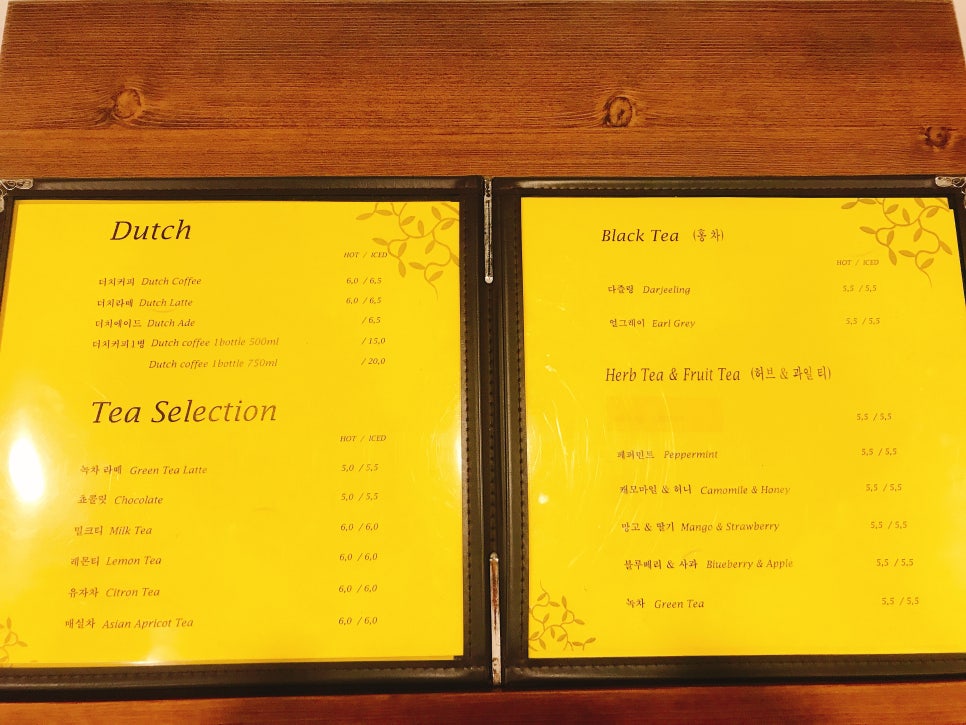 Dutch
HOT / ICED
더치커피 Dutch Coffee 6,0 / 6,5
더치라떼 Dutch Latte 6,0 / 6,5
더치에이드 Dutch Ade / 6,5
더치커피1병 Dutch coffee 1bottle 500ml / 15,0
Dutch coffee 1bottle 750ml / 20,0
Tea Selection
HOT / ICED
녹차 라떼 Green Tea Latte 5,0 / 5,5
쵸콜릿 Chocolate 5,0 / 5,5
밀크티 Milk Tea 6,0 / 6,0
레몬티 Lemon Tea 6,0 / 6,0
유자차 Citron Tea 6,0 / 6,0
매실차 Asian Apricot Tea 6,0 / 6,0
Black Tea (홍차)
HOT / ICED
다즐링 Darjeeling 5,5 / 5,5
얼그레이 Earl Grey 5,5 / 5,5
Herb Tea & Fruit Tea (허브 & 과일 티)
5,5 / 5,5
페퍼민트 Peppermint 5,5 / 5,5
캐모마일 & 허니 Camomile & Honey 5,5 / 5,5
망고 & 딸기 Mango & Strawberry 5,5 / 5,5
블루베리 & 사과 Blueberry & Apple 5,5 / 5,5
녹차 Green Tea 5,5 / 5,5